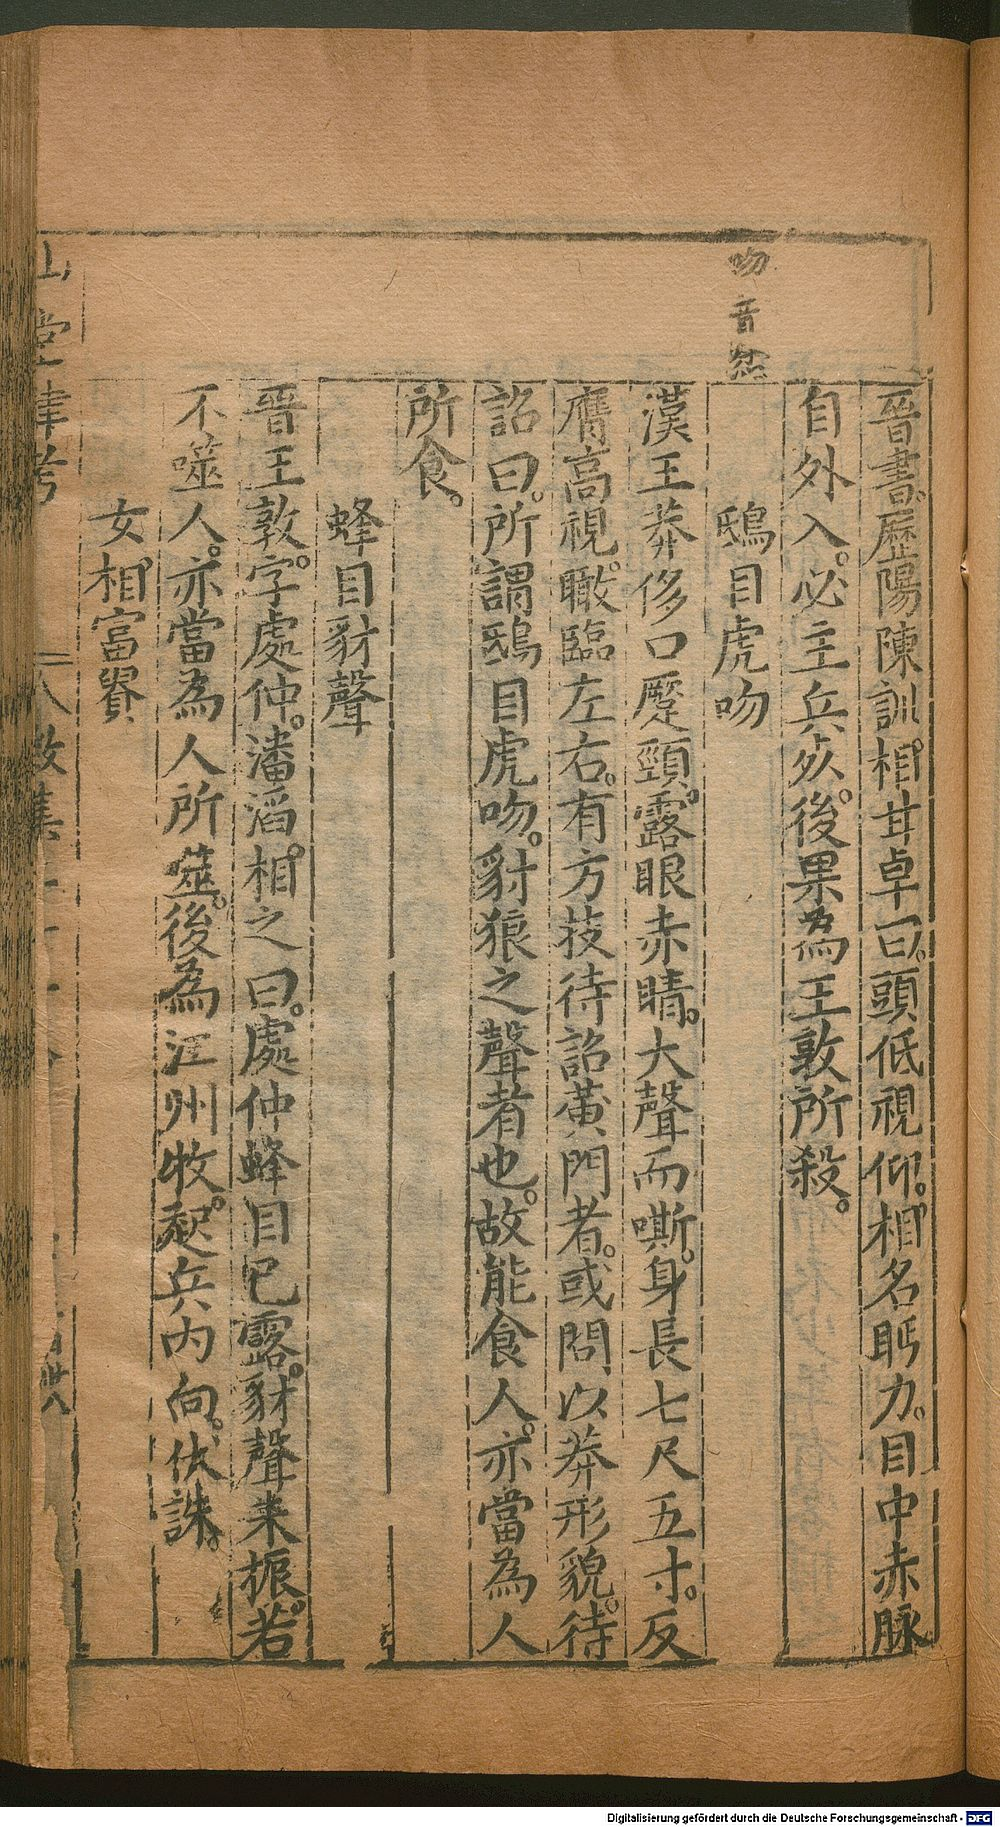 晉書歷陽陳訓相甘卓曰頭低視仰相名眄刀目中赤脉
自外入必主兵死後果為王敦所殺
吻音
鴟目虎吻
漢王莽侈口蹷頤露眼赤睛大聲而嘶身長七尺五寸反
膺高視瞰臨左右有方技待詔黃門者或問以莽形貌待
詔曰所謂鴟目虎吻豺狼之聲者也故能食人亦當為人
所食
蜂目豺聲
晉王敦字處仲潘滔相之曰處仲蜂目已露豺聲未振若
不噬人亦當為人所噬後為江州牧起兵內向伏誅
女相當貴
山堂肆考
Digitalisierung gefördert durch die Deutsche Forschungsgemeinschaft - DFG